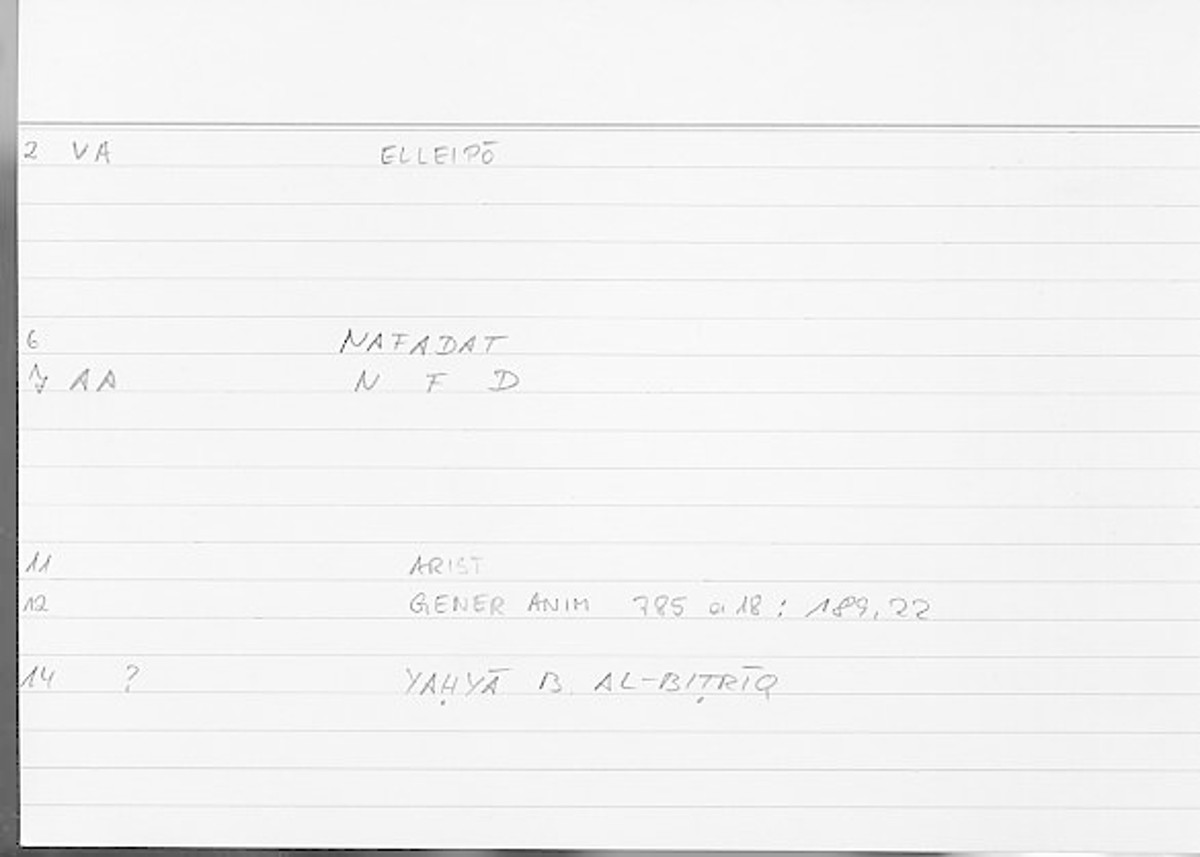 2 VA ELLEIPŌ
6 NAFADAT
7 AA N F D
11 ARIST
12 GENER ANIM 785 a 18 : 189,22
14 ? YAḤYĀ B. AL-BIṬRĪQ